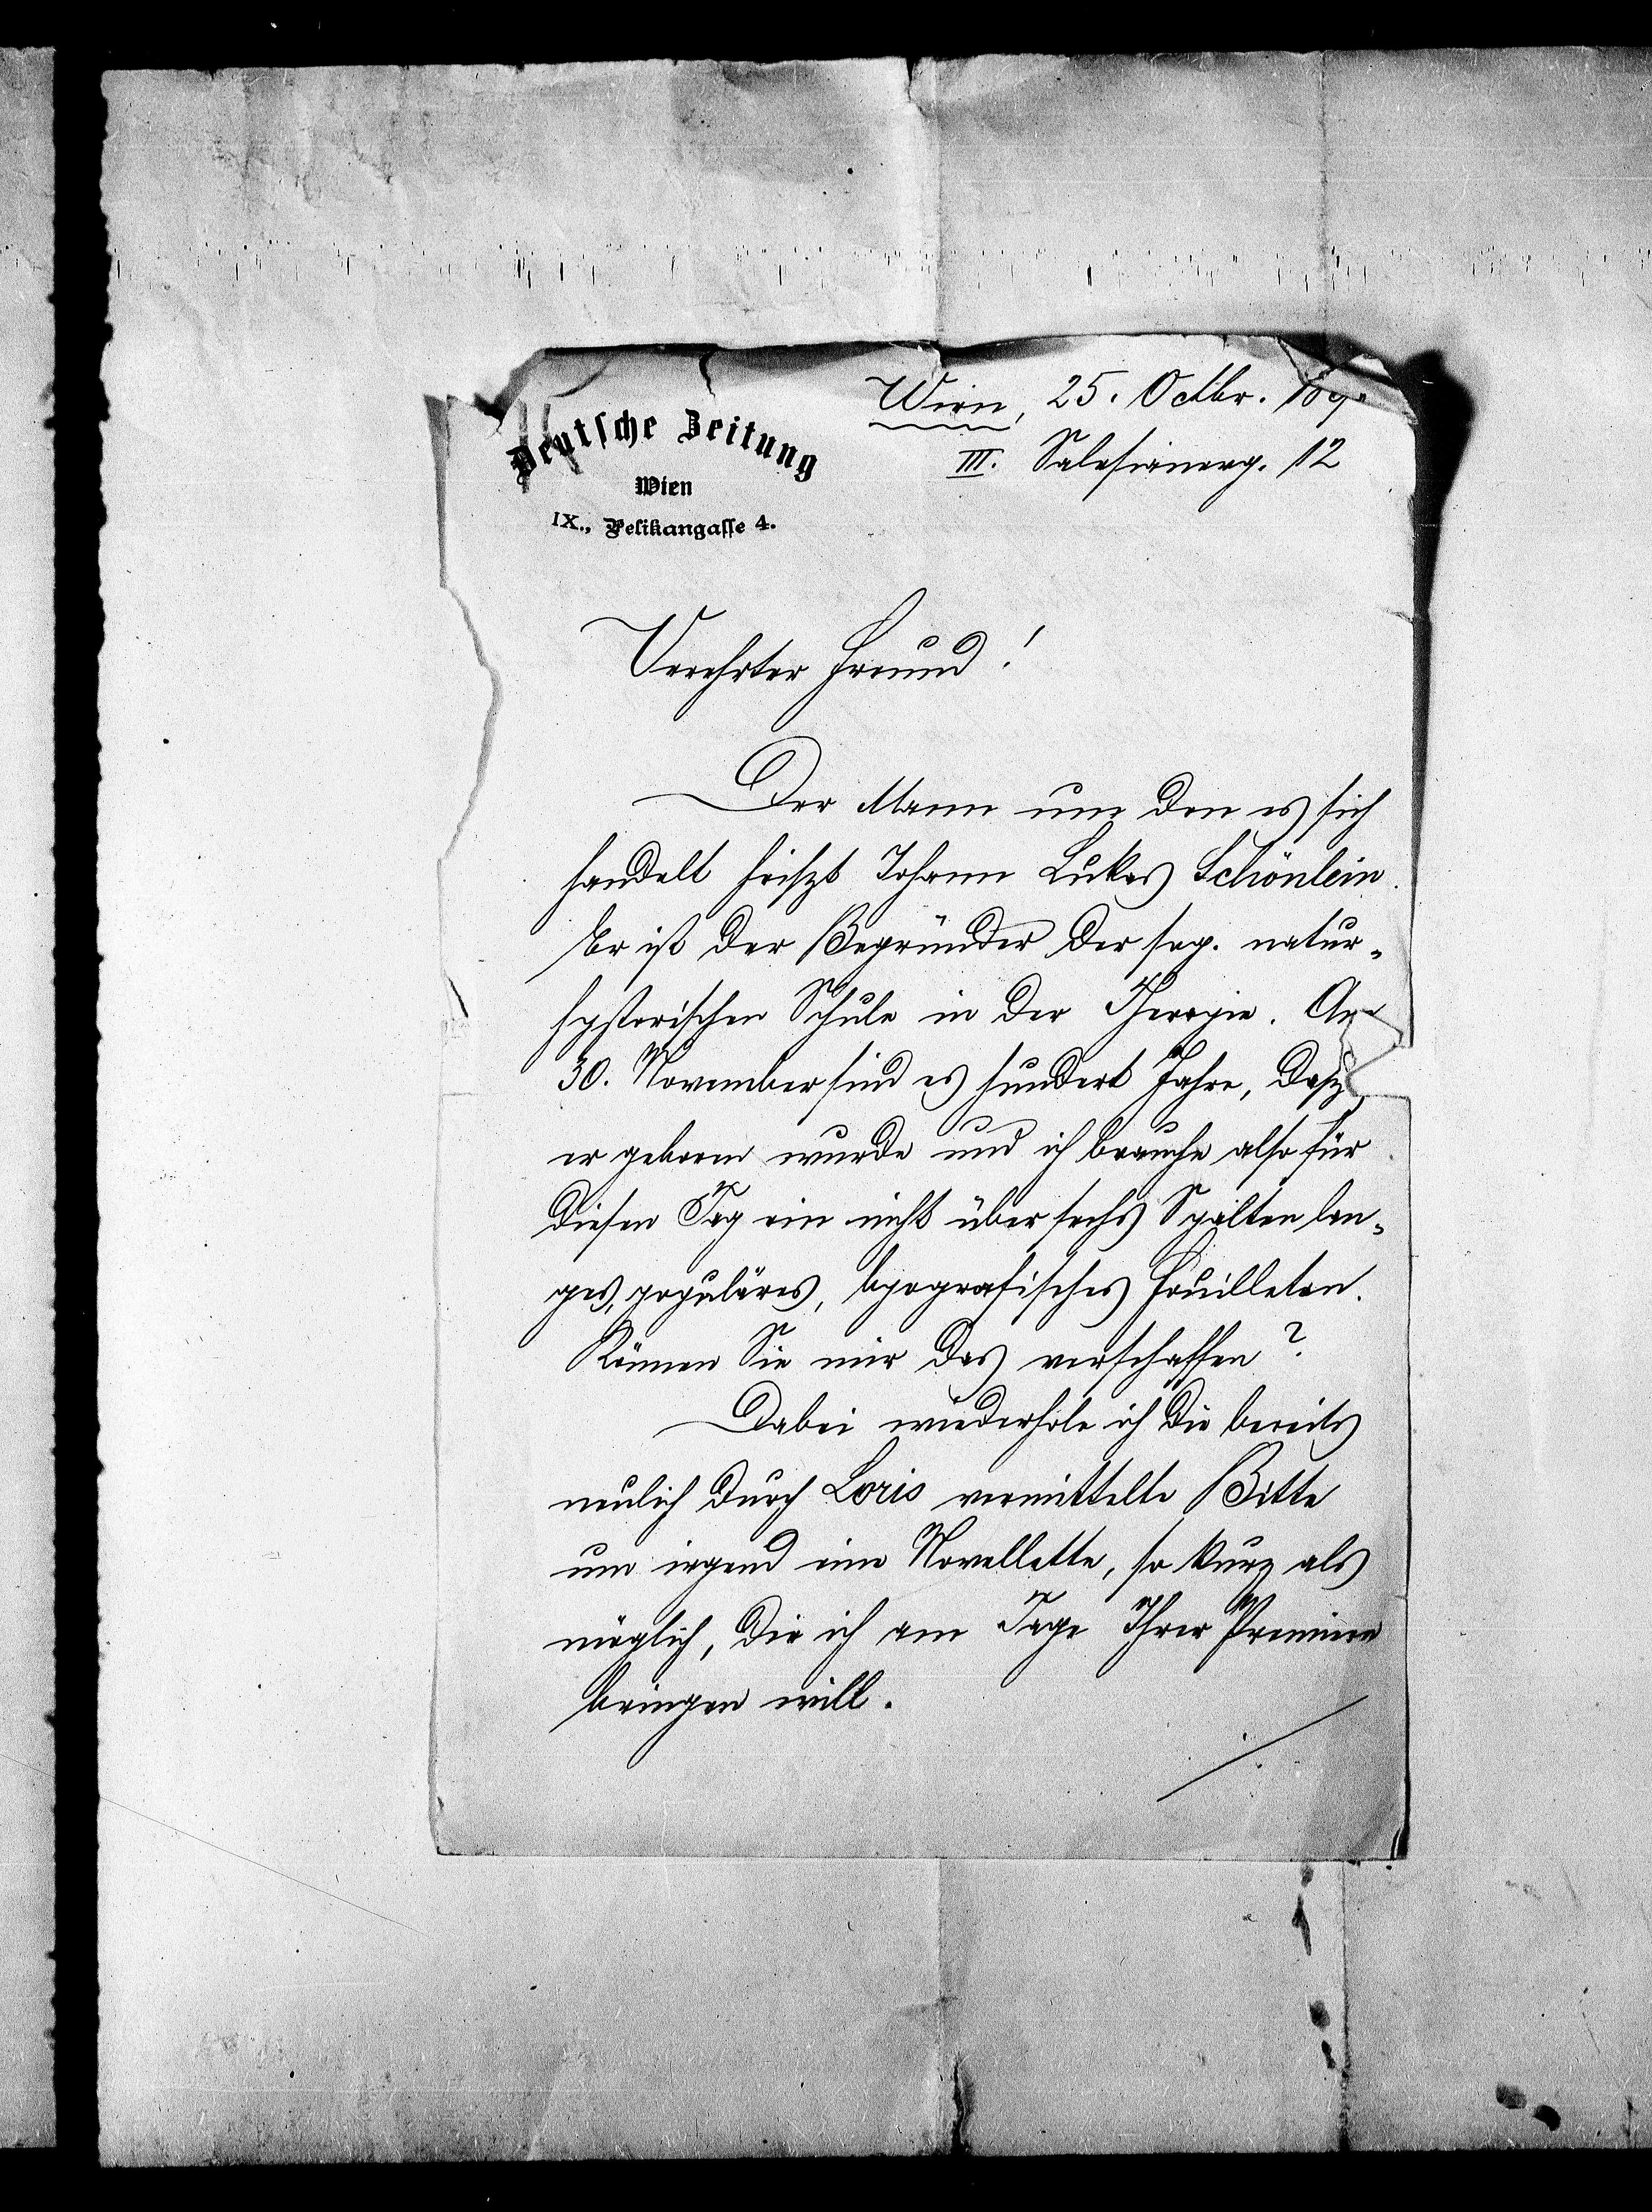 Deutsche Zeitung
Wien
IX., Pelikangasse 4.
Wien, 25. Octbr. 189
III. Salesianerg. 12
Verehrter Freund!
Der Mann um den es sich
handelt heiszt Johann Lukas Schönlein.
Er ist der Begründer der sog. natur-
hystorischen Schule in der Therapie. Am
30. November sind es hundert Jahre, dasz
er geboren wurde und ich brauche also für
diesen Tag ein nicht über sechs Spalten lan-
ges, populäres, byografisches Feuilleton.
Können Sie mir das verschaffen?
Dabei wiederhole ich die bereits
neulich durch Loris vermittelte Bitte
um irgend eine Novellette, so kurz als
möglich, die ich am Tage Ihrer Premiere
bringen will.